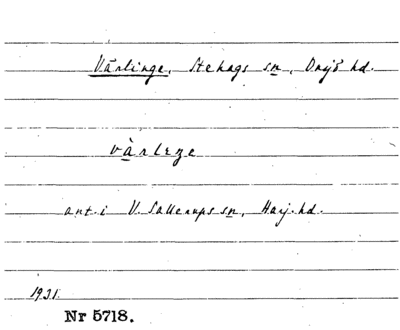 Vårlinge, Stehags sn, Onsjö hd.
vårlεŋe
ant. i V. Sallerups sn, Harj. hd.
1931.
Nr 5718.